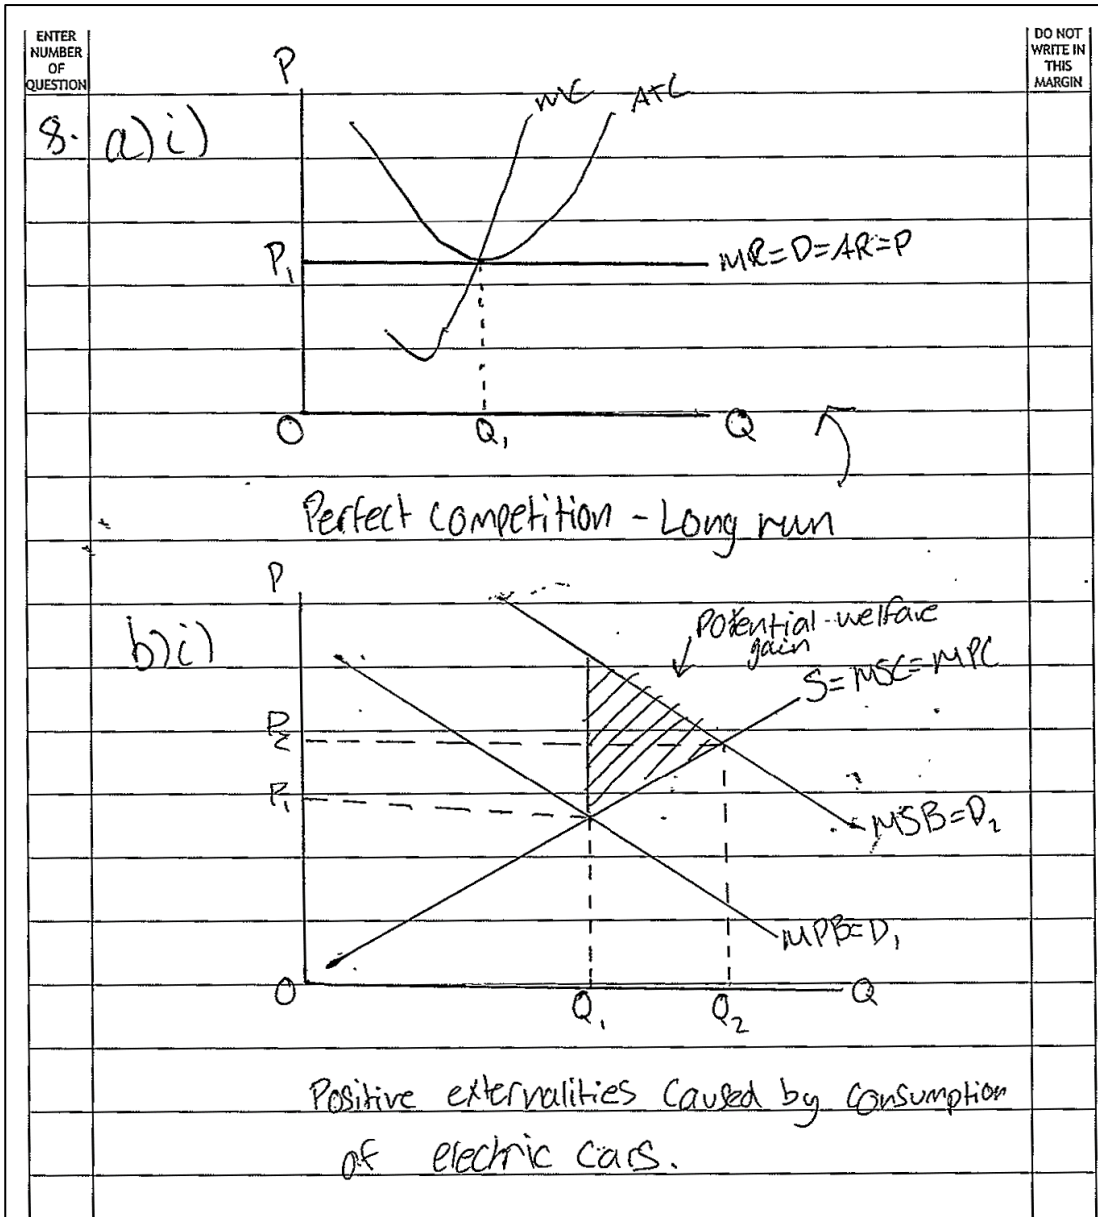 ENTER
NUMBER
OF
QUESTION
DO NOT
WRITE IN
THIS
MARGIN
8. a)i)
P
MC
ATC
P₁
MR=D=AR=P
O
Q₁
Q
Perfect competition - Long run
b)i)
P
Potential welfare
gain
S=MSC=MPC
P₂
P₁
MSB=D₂
MPB=D₁
O
Q₁
Q₂
Q
Positive externalities caused by consumption
of electric cars.